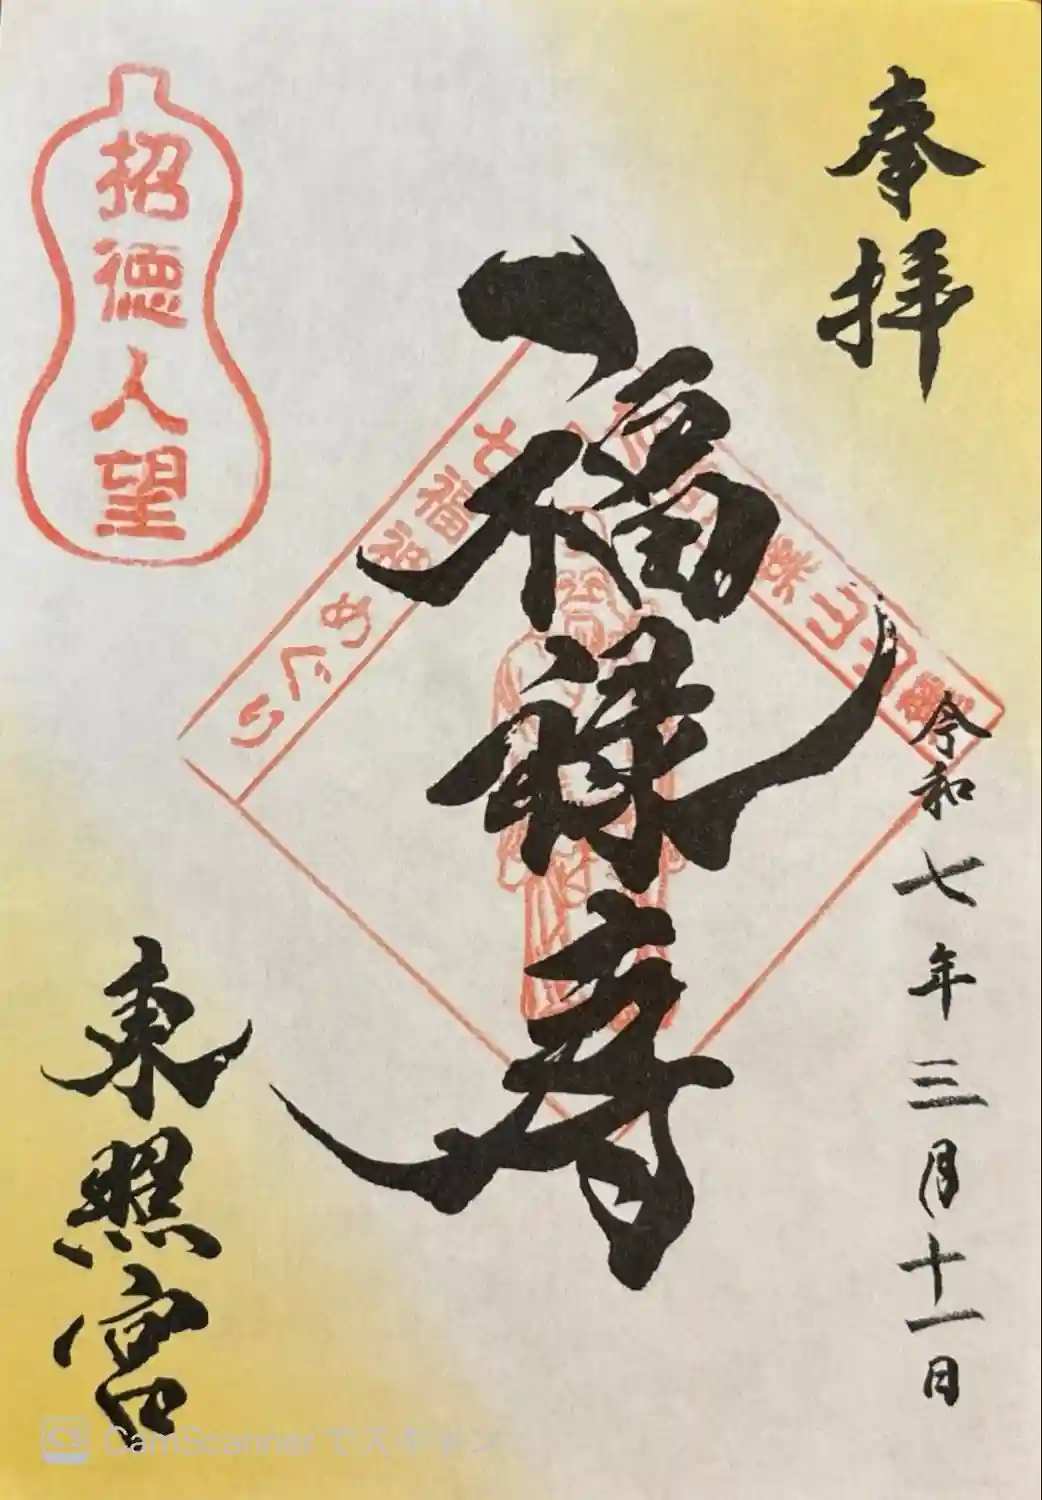 奉拝
令和七年三月十一日
福禄寿
七福神めぐり
招徳人望
東照宮
CamScannerでスキャン